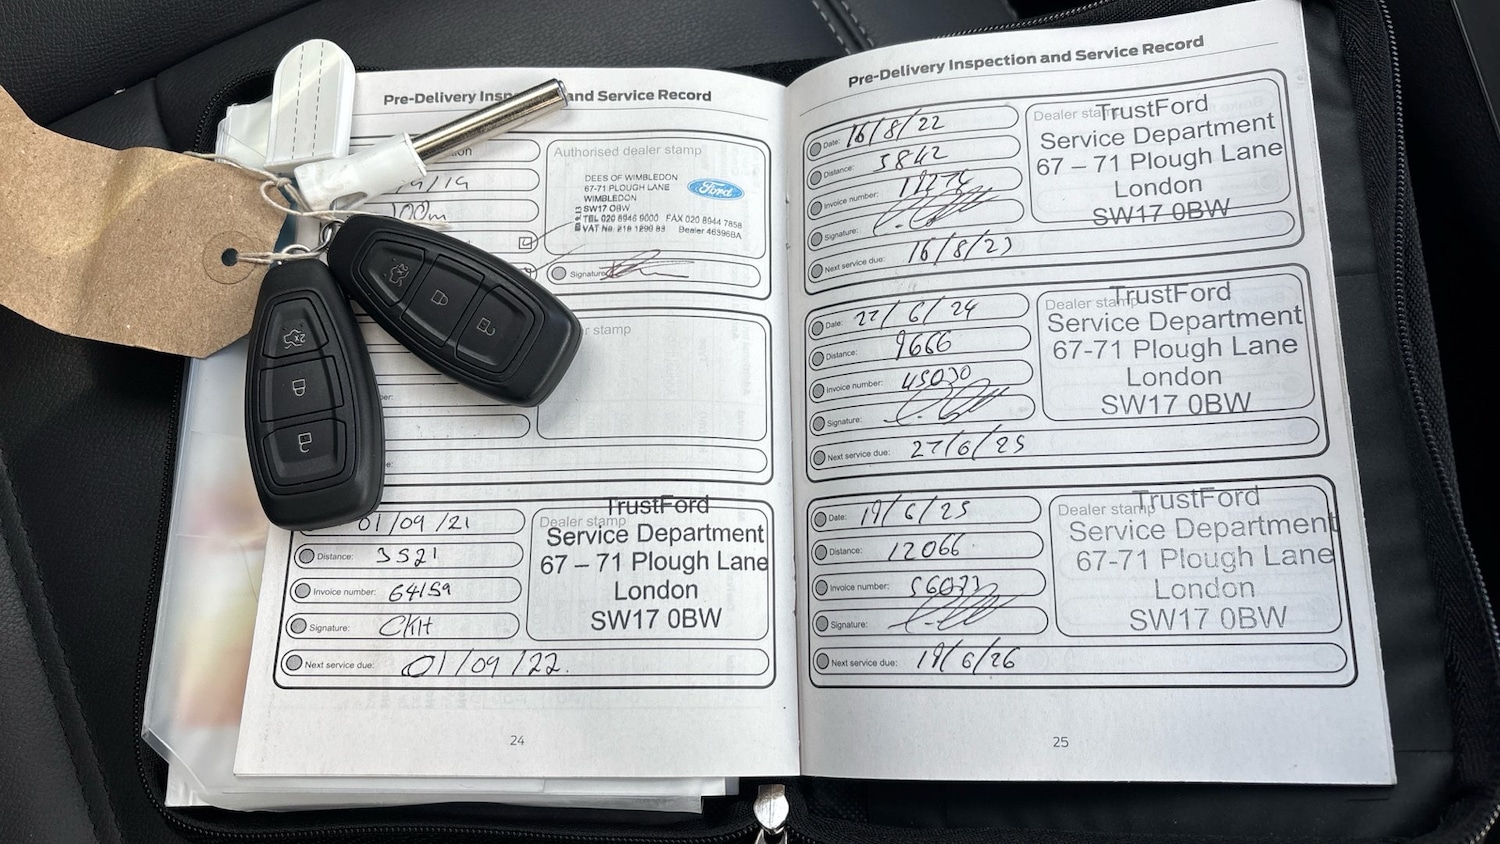 Pre-Delivery Insp and Service Record
/9/19
100m
Authorised dealer stamp
DEES OF WIMBLEDON
67-71 PLOUGH LANE
WIMBLEDON
SW17 0BW
TEL 020 8946 9000 FAX 020 8944 7858
VAT No. 218 1290 83 Dealer 46396BA
Ford
Signature
er stamp
01/09/21
Distance: 3521
Invoice number: 64159
Signature: CKH
Next service due: 01/09/22.
Dealer stamp
TrustFord
Service Department
67 – 71 Plough Lane
London
SW17 0BW
24
Pre-Delivery Inspection and Service Record
Date: 16/8/22
Distance: 5842
Invoice number:
Signature:
Next service due: 16/8/23
Dealer stamp
TrustFord
Service Department
67 – 71 Plough Lane
London
SW17 0BW
Date: 27/6/24
Distance: 9666
Invoice number: 45030
Signature:
Next service due: 27/6/25
Dealer stamp
TrustFord
Service Department
67-71 Plough Lane
London
SW17 0BW
Date: 19/6/25
Distance: 12066
Invoice number: 56073
Signature:
Next service due: 19/6/26
Dealer stamp
TrustFord
Service Department
67-71 Plough Lane
London
SW17 0BW
25
2x